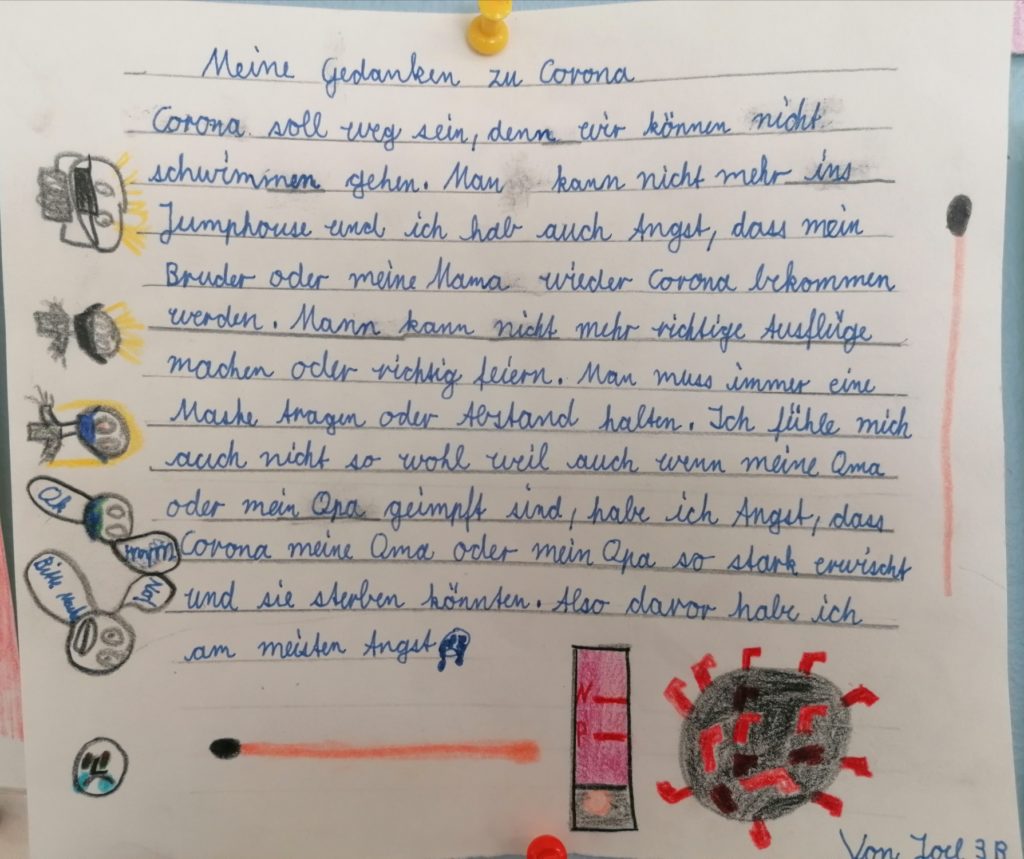 Meine Gedanken zu Corona
Corona soll weg sein, denn wir können nicht
schwimmen gehen. Man kann nicht mehr ins
Jumphouse und ich hab auch Angst, dass mein
Bruder oder meine Mama wieder Corona bekommen
werden. Mann kann nicht mehr richtige Ausflüge
machen oder richtig feiern. Man muss immer eine
Maske tragen oder Abstand halten. Ich fühle mich
auch nicht so wohl weil auch wenn meine Oma
oder mein Opa geimpft sind, habe ich Angst, dass
Corona meine Oma oder mein Opa so stark erwischt
und sie sterben könnten. Also davor habe ich
am meisten Angst
Ok
Bitte
N
P
Von Joel 3B